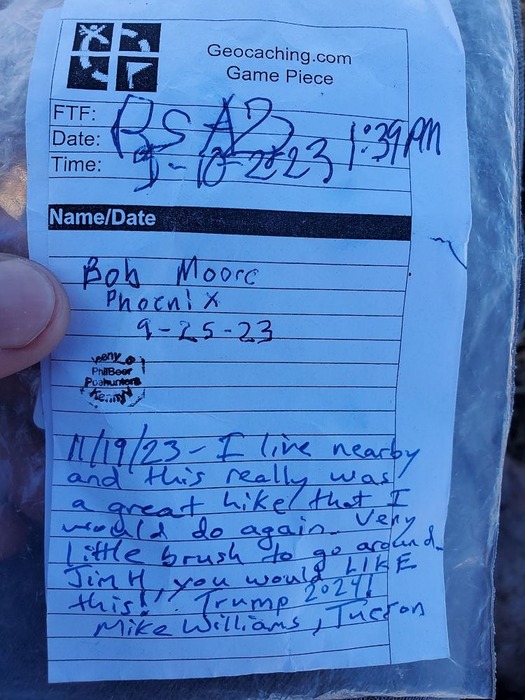 Geocaching.com
Game Piece
FTF:
Date:
Time:
1:39 PM
Name/Date
Bob Moore
Phoenix
9-25-23
PhilBeer
Poohunters
Kenny
11/19/23 - I live nearby
and this really was
a great hike that I
would do again. Very
little brush to go around.
Jim H, you would LIKE
this! Trump 2024!
Mike Williams, Tucson